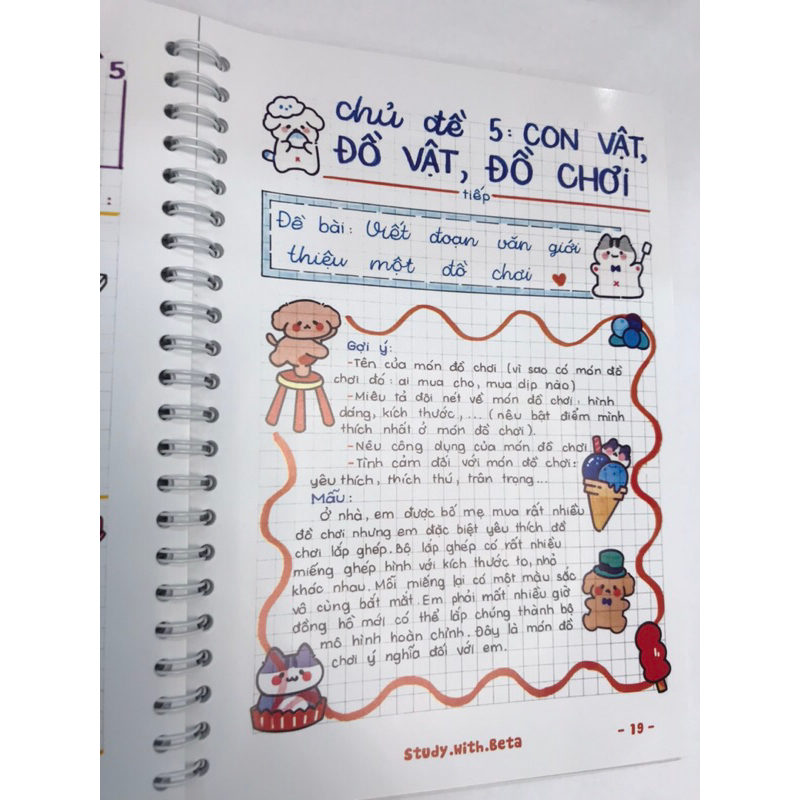 5
:
chủ đề 5: CON VẬT,
ĐỒ VẬT, ĐỒ CHƠI
tiếp
Đề bài: Viết đoạn văn giới
thiệu một đồ chơi
Gợi ý:
-Tên của món đồ chơi (vì sao có món đồ
chơi đó: ai mua cho, mua dịp nào)
-Miêu tả đôi nét về món đồ chơi: hình
dáng, kích thước,... (nêu bật điểm mình
thích nhất ở món đồ chơi).
-Nêu công dụng của món đồ chơi
-Tình cảm đối với món đồ chơi:
yêu thích, thích thú, trân trọng...
Mẫu:
Ở nhà, em được bố mẹ mua rất nhiều
đồ chơi nhưng em đặc biệt yêu thích đồ
chơi lắp ghép. Bộ lắp ghép có rất nhiều
miếng ghép hình với kích thước to, nhỏ
khác nhau. Mỗi miếng lại có một màu sắc
vô cùng bắt mắt. Em phải mất nhiều giờ
đồng hồ mới có thể lắp chúng thành bộ
mô hình hoàn chỉnh. Đây là món đồ
chơi ý nghĩa đối với em.
Study.With.Beta
- 19 -